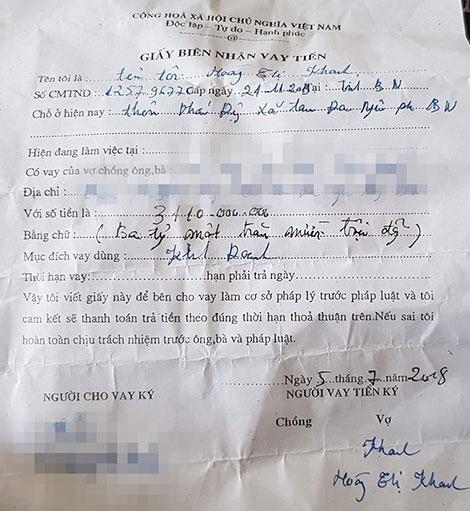 CỘNG HOÀ XÃ HỘI CHỦ NGHĨA VIỆT NAM
Độc lập – Tự do – Hạnh phúc
@
GIẤY BIÊN NHẬN VAY TIỀN
Tên tôi là: tên tôi Hoàng Thị Khanh
Số CMTND: Cấp ngày 21.11.20 Tại: Tỉnh B N
Chỗ ở hiện nay: thôn B N
Hiện đang làm việc tại:
Có vay của vợ chồng ông,bà:
Địa chỉ:
Với số tiền là: 3110.000.000
Bằng chữ: (Ba tỷ một trăm triệu
Mục đích vay dùng: Kinh Doanh
Thời hạn vay: hạn phải trả ngày
Vậy tôi viết giấy này để bên cho vay làm cơ sở pháp lý trước pháp luật và tôi
cam kết sẽ thanh toán trả tiền theo đúng thời hạn thoả thuận trên.Nếu sai tôi
hoàn toàn chịu trách nhiệm trước ông,bà và pháp luật.
Ngày 5 tháng 7 năm 2018
NGƯỜI CHO VAY KÝ
NGƯỜI VAY TIỀN KÝ
Chồng Vợ
Khanh
Hoàng Thị Khanh